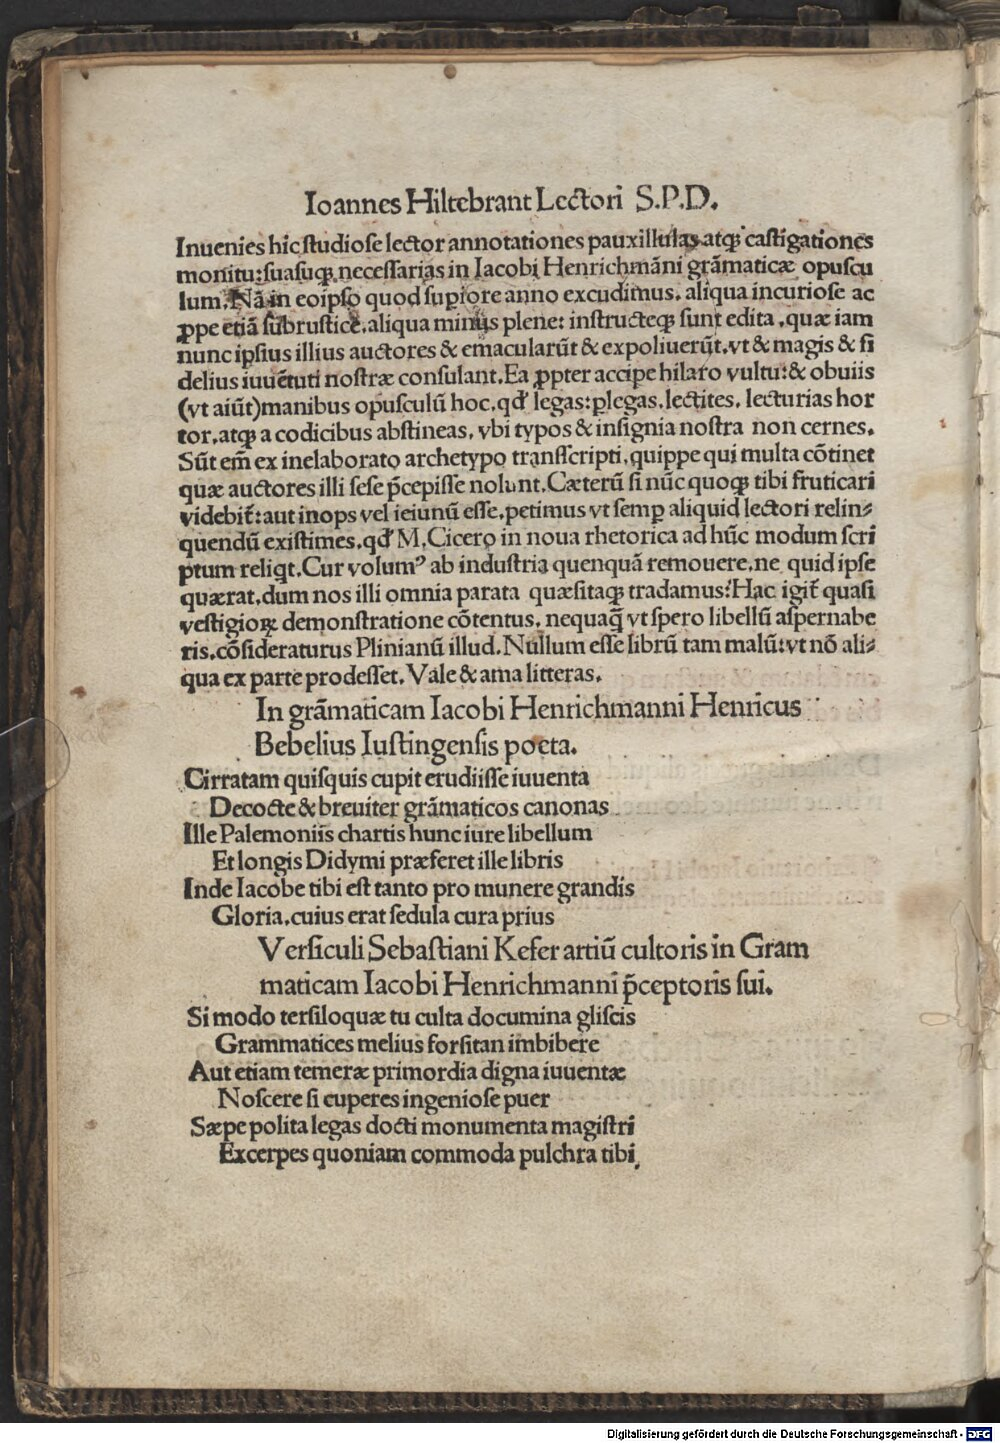 Ioannes Hiltebrant Lectori S.P.D.
Inuenies hic studiose lector annotationes pauxillulas atqꝫ castigationes
monitu: suasuqꝫ necessarias in Iacobi Henrichmāni grāmaticæ opuscu
lum. Nā in eoipso quod superiore anno excudimus, aliqua incuriose ac
ꝓpe etiā subrustice, aliqua minus plene: instructeqꝫ sunt edita, quæ iam
nunc ipsius illius auctores & emacularūt & expoliuerūt. vt & magis & fi
delius iuuētuti nostræ consulant. Ea ꝓpter accipe hilaro vultu: & obuiis
(vt aiūt) manibus opusculū hoc, qď legas: ꝑlegas, lectites, lecturias hor
tor, atqꝫ a codicibus abstineas, vbi typos & insignia nostra non cernes.
Sūt em̄ ex inelaborato archetypo transscripti, quippe qui multa cōtinet
quæ auctores illi sese p̄cepisse nolunt. Cæterū si nūc quoqꝫ tibi fruticari
videbit̄: aut inops vel ieiunū esse, petimus vt semꝑ aliquid lectori relin⸗
quendū existimes, qď M. Cicero in noua rhetorica ad hūc modum scri
ptum reliqt. Cur volumꝰ ab industria quenquā remouere, ne quid ipse
quærat, dum nos illi omnia parata quæsitaqꝫ tradamus? Hac igit̄ quasi
vestigioꝝ demonstratione cōtentus, nequaq̄ vt spero libellū aspernabe
ris, cōsideraturus Plinianū illud. Nullum esse librū tam malū: vt nō ali⸗
qua ex parte prodesset. Vale & ama litteras.
In grāmaticam Iacobi Henrichmanni Henricus
Bebelius Iustingensis poeta.
Cirratam quisquis cupit erudiisse iuuenta
Decocte & breuiter grāmaticos canonas
Ille Palemoniis chartis hunc iure libellum
Et longis Didymi præferet ille libris
Inde Iacobe tibi est tanto pro munere grandis
Gloria, cuius erat sedula cura prius
Versiculi Sebastiani Kefer artiū cultoris in Gram
maticam Iacobi Henrichmanni p̄ceptoris sui.
Si modo tersiloquæ tu culta documina gliscis
Grammatices melius forsitan imbibere
Aut etiam temeræ primordia digna iuuentæ
Noscere si cuperes ingeniose puer
Sæpe polita legas docti monumenta magistri
Excerpes quoniam commoda pulchra tibi.
Digitalisierung gefördert durch die Deutsche Forschungsgemeinschaft - DFG